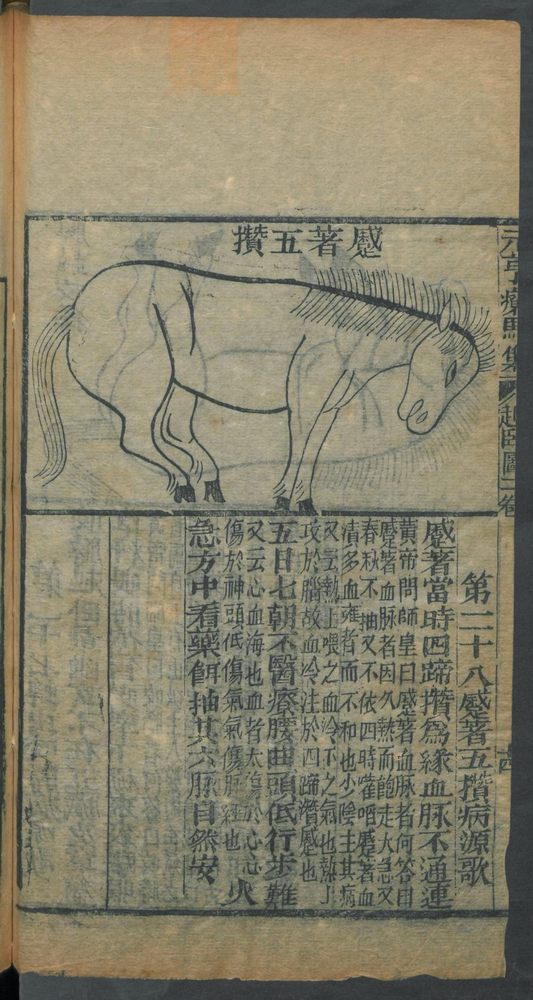 元亨療馬集 起臥圖一卷
蹙著五攢
第二十八蹙著五攢病源歌
蹙著當時四蹄攢爲緣血脉不通連
黄帝問師皇曰蹙著血脉者何答曰
蹙著血脉者因久熱而飽走大急又
春秋不抽又不依四時嚾啗蹙著血
清多血雍者而不和也少陰主其病
又云熱上喂之血冷下之氣也熱上
攻於腦故血冷注於四蹄攢蹙也
五日七朝不醫療腰曲頭低行步難
又云心血海也血者太傷於心心火
傷於神頭低傷氣氣傷脉經也
急方中看藥餌抽其六脉自然安